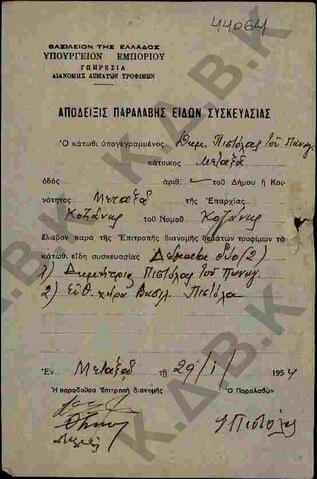 44064
ΒΑΣΙΛΕΙΟΝ ΤΗΣ ΕΛΛΑΔΟΣ
ΥΠΟΥΡΓΕΙΟΝ ΕΜΠΟΡΙΟΥ
ΥΠΗΡΕΣΙΑ
ΔΙΑΝΟΜΗΣ ΔΕΜΑΤΩΝ ΤΡΟΦΙΜΩΝ
ΑΠΟΔΕΙΞΙΣ ΠΑΡΑΛΑΒΗΣ ΕΙΔΩΝ ΣΥΣΚΕΥΑΣΙΑΣ
Ὁ κάτωθι ὑπογεγραμμένος Δημ. Πιστόλας τοῦ Παναγ.
κάτοικος Μεταξᾶ
ὁδὸς ἀριθ. τοῦ Δήμου ἢ Κοι-
νότητος Μεταξᾶ τῆς Ἐπαρχίας
Κοζάνης τοῦ Νομοῦ Κοζάνης
ἔλαβον παρὰ τῆς Ἐπιτροπῆς διανομῆς δεμάτων τροφίμων τὰ
κάτωθι εἴδη συσκευασίας Δέματα δύο (2)
1) Δημήτριος Πιστόλας τοῦ Παναγ.
2) Εὐθ. χήρα Βασιλ. Πιστόλα
Ἐν Μεταξᾷ τῇ 29/1/1954
Ἡ παραδοῦσα Ἐπιτροπὴ διανομῆς Ὁ Παραλαβὼν
Πιστόλας
Κ.Δ.Β.Κ
Κ.Δ.Β.Κ
Κ.Δ.Β.Κ